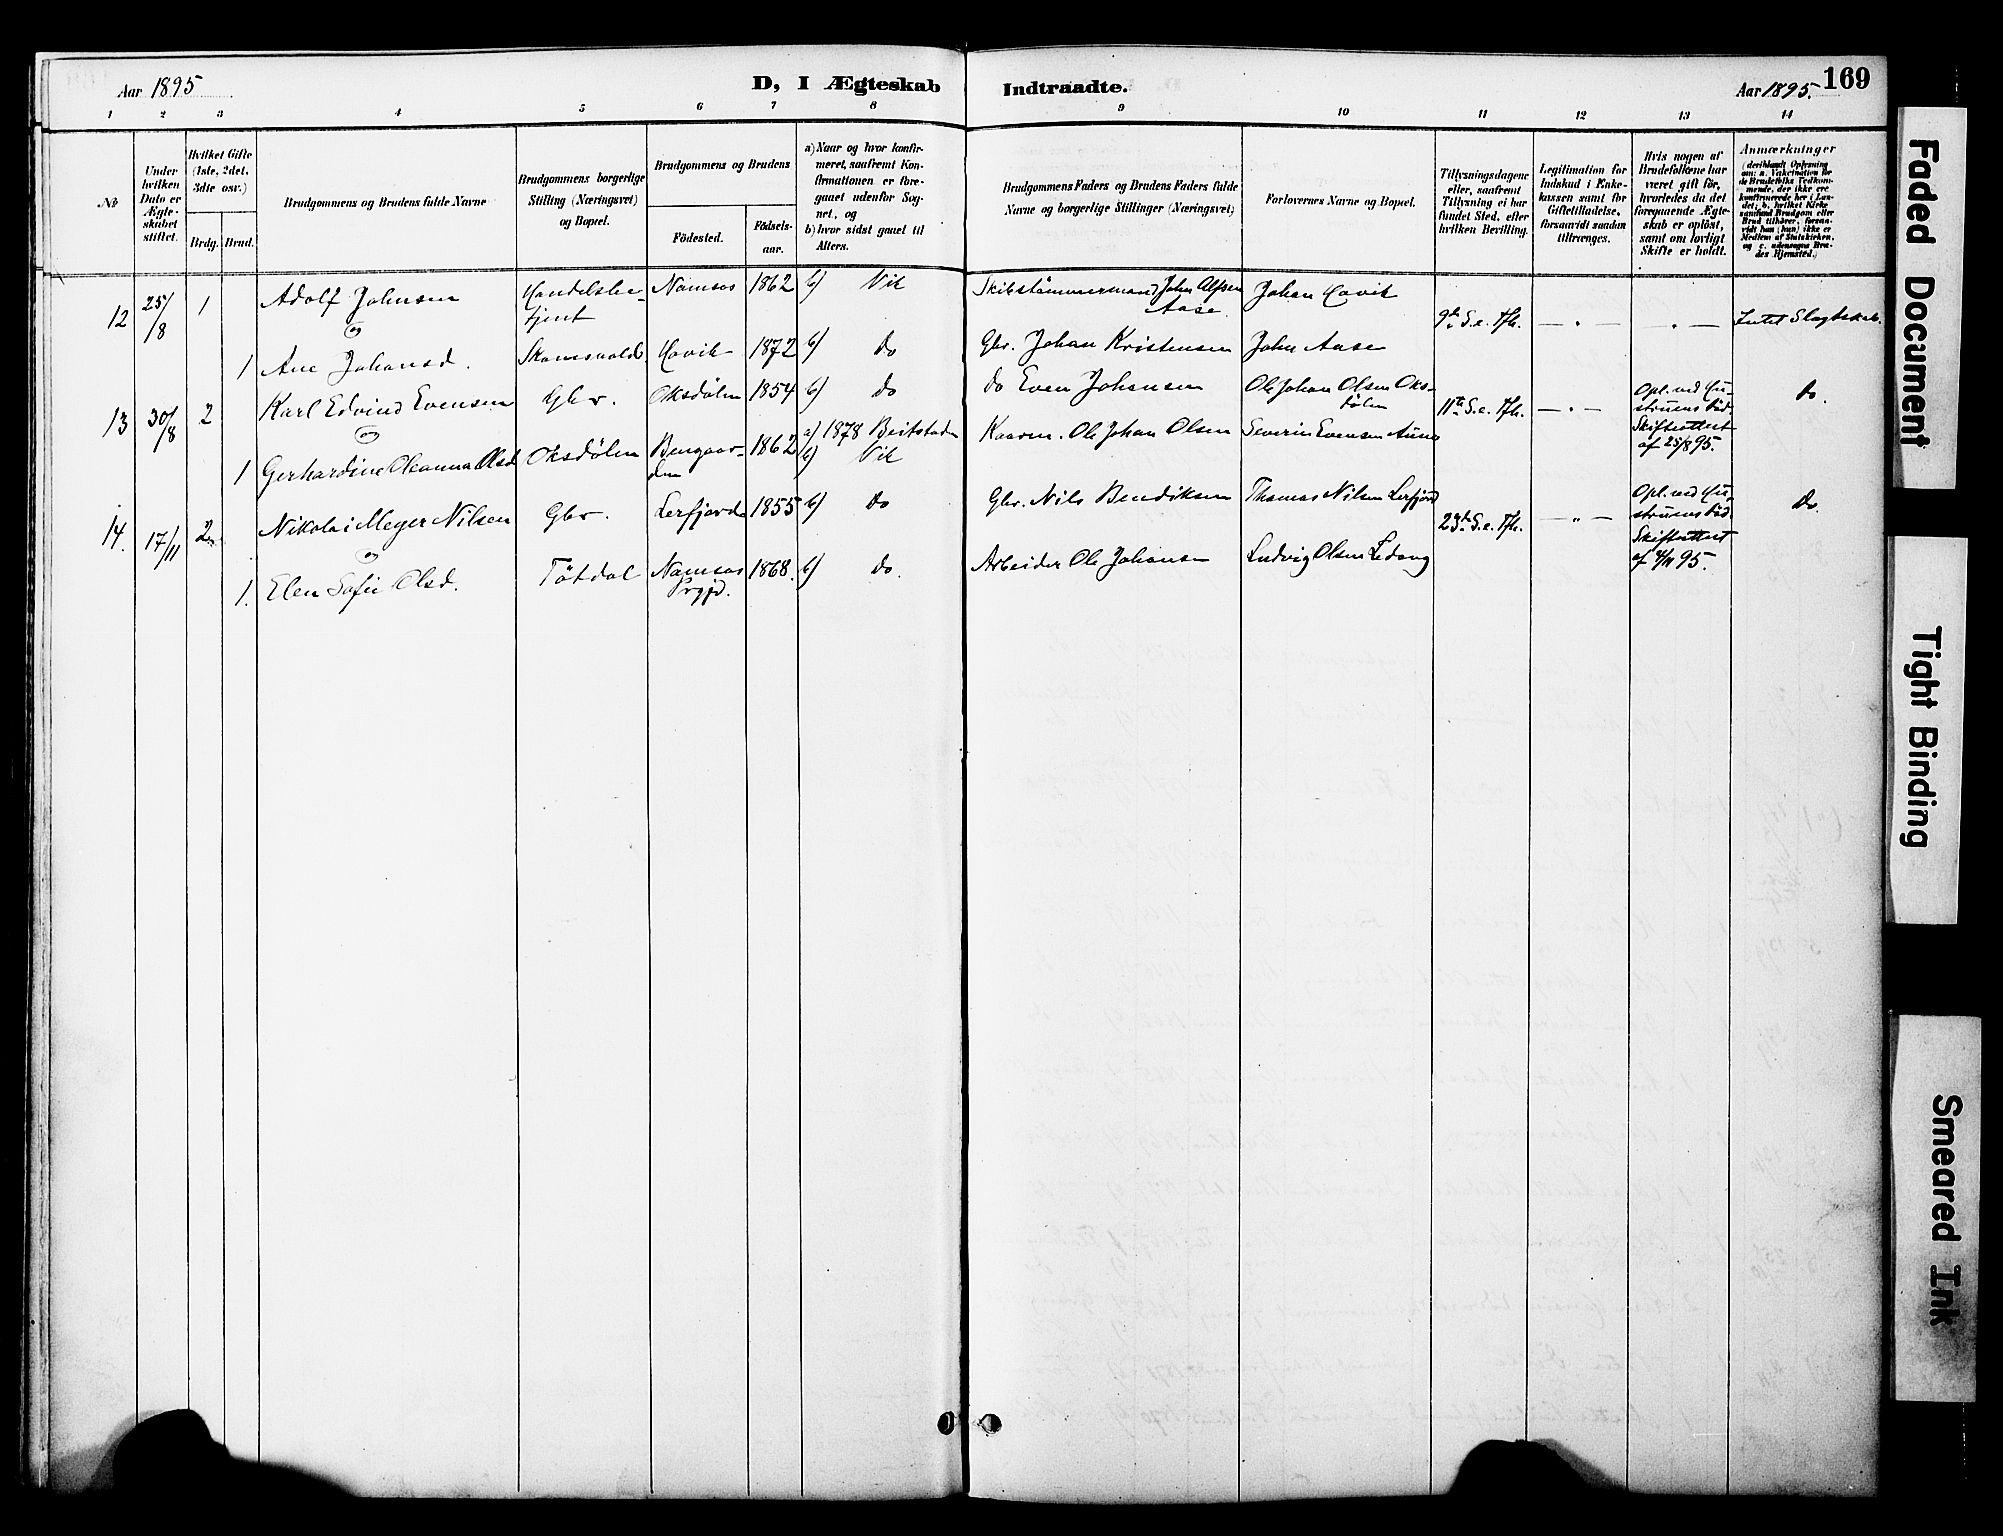 Aar 1895
D, I Ægteskab Indtraadte.
Aar 1895. 169
1 2 3 4 5 6 7 8 9 10 11 12 13 14
No
Under
hvilken
Dato er
Ægte-
skabet
stiftet.
Hvilket Gifte
(1ste, 2det,
3die osv.)
Brdg. Brud.
Brudgommens og Brudens fulde Navne
Brudgommens borgerlige
Stilling (Næringsvei)
og Bopæl.
Brudgommens og Brudens
Fødested.
Fødsels-
aar.
a) Naar og hvor konfir-
meret, saafremt Kon-
firmationen er fore-
gaaet udenfor Sog-
net, og
b) hvor sidst gaaet til
Alters.
Brudgommens Faders og Brudens Faders fulde
Navne og borgerlige Stillinger (Næringsvei)
Forlovernes Navne og Bopæl.
Tillysningsdagene
eller, saafremt
Tillysning ei har
fundet Sted, efter
hvilken Bevilling.
Legitimation for
Indskud i Enke-
kassen samt for
Giftetilladelse,
forsaavidt saadan
tiltrænges.
Hvis nogen af
Brudefolkene har
været gift før,
hvorledes da det
foregaaende Ægte-
skab er opløst,
samt om lovligt
Skifte er holdt.
Anmærkninger
(deriblandt Oplysning
om: a. Vakcination for
de Brudefolks Vedkom-
mende, der ikke ere
konfirmerede her i Lan-
det; b. hvilket Kirke-
samfund Brudgom eller
Brud tilhører, forsaa-
vidt han (hun) ikke er
Medlem af Statskirken,
og c. udensogns Bru-
des Hjemsted.)
12 25/8 1 Adolf Johnsen Handelsbe-
tjent Namsos 1862 b) Vik Skibstømmermand John Alfsen
Aase. Johan Havik 9de S. e. Tfh. — " — — " — Intet Slagtskab.
og
1 Ane Johansd. Havik 1872 b) do Gbr. Johan Kristensen John Aase
13 30/8 2 Karl Edvind Evensen Gbr. Oksdølen 1854 b) do do Even Johansen Ole Johan Olsen Oks-
dølen 11te S. e. Tfh. — " — Opl. ved Hu-
struens Død.
Skifteattest
af 25/8 95. do.
og
1 Gerhardine Oleanna Olsd Oksdølen 1862 a) 1878 Beitstaden
b) Vik Ole Johan Olsen Severin Evensen Aune
14. 17/11 2 Nikolai Meyer Nilsen Gbr. Lerfjord 1855 b) do Gbr. Nils Bendiksen Thomas Nilsen Lerfjord 23de S. e. Tfh. — " — Opl. ved Hu-
struens Død.
Skifteattest
95. do.
og
1. Elen Sofie Olsd. Tøtdal Namsos
Prgjd. 1868. b) do. Arbeider Ole Johansen Ludvig Olsen
Faded Document
Tight Binding
Smeared Ink